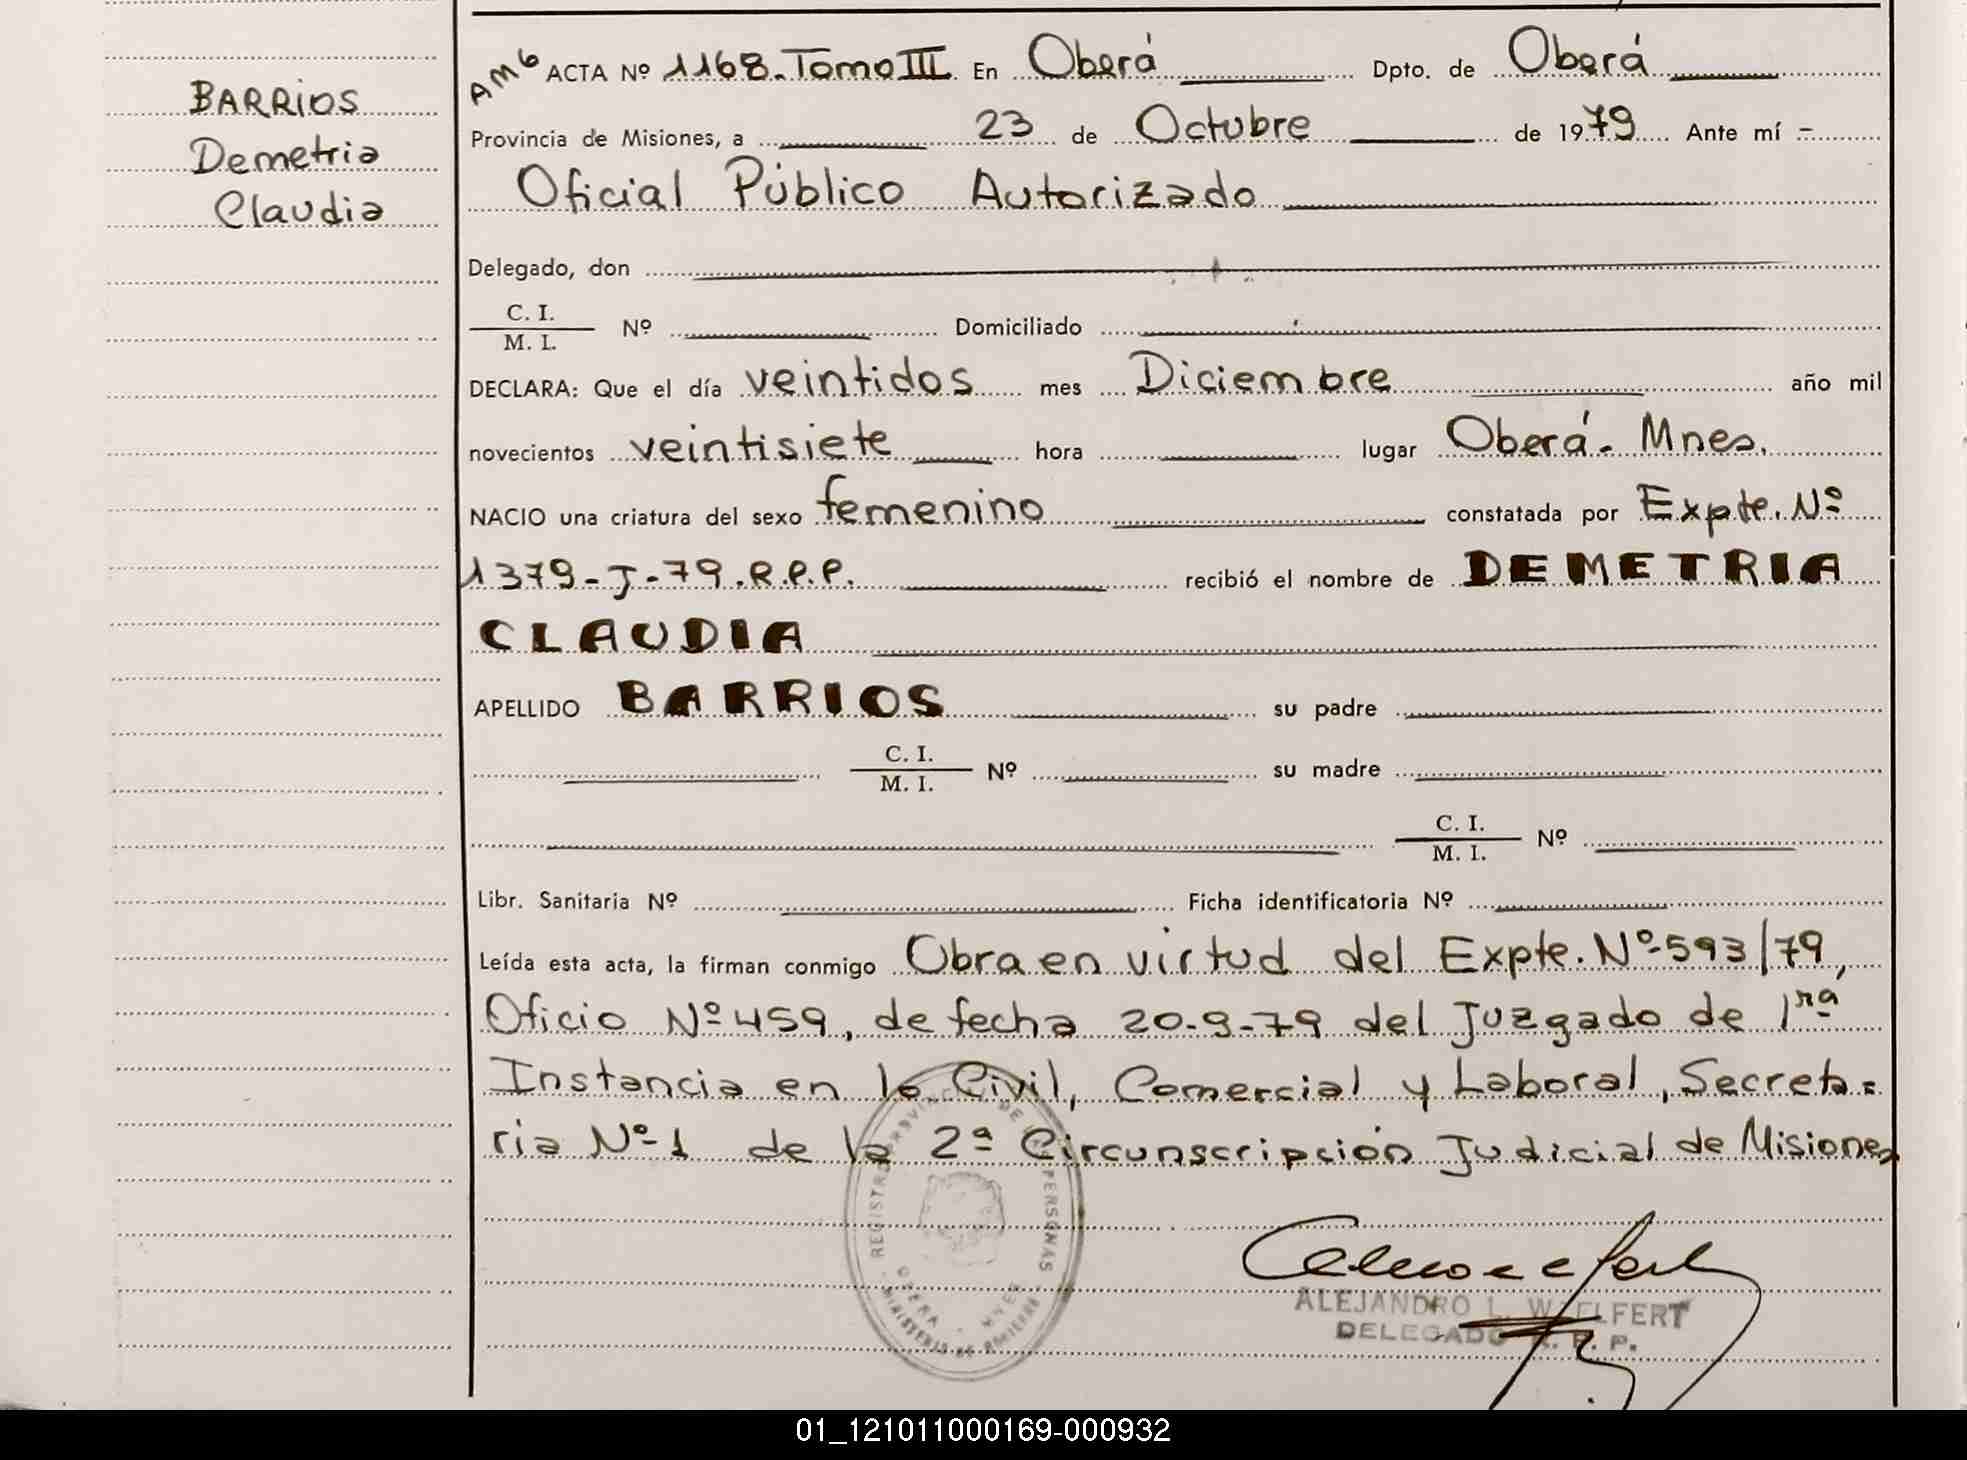 BARRIOS
Demetria
Claudia
AM6 ACTA Nº 1168. Tomo III En Oberá Dpto. de Oberá
Provincia de Misiones, a 23 de Octubre de 1979 Ante mí -
Oficial Público Autorizado
Delegado, don
C. I.
M. I. Nº Domiciliado
DECLARA: Que el día veintidos mes Diciembre año mil
novecientos veintisiete hora lugar Oberá- Mnes.
NACIO una criatura del sexo femenino constatada por Expte. Nº
1379-J-79.R.P.P. recibió el nombre de DEMETRIA
CLAUDIA
APELLIDO BARRIOS su padre
C. I.
M. I. Nº su madre
C. I.
M. I. Nº
Libr. Sanitaria Nº Ficha identificatoria Nº
Leída esta acta, la firman conmigo Obra en virtud del Expte. Nº 593/79,
Oficio Nº 459, de fecha 20-9-79 del Juzgado de 1ra
Instancia en lo Civil, Comercial y Laboral, Secreta=
ria Nº 1 de la 2ª Circunscripción Judicial de Misiones
REGISTRO PROVINCIAL DE LAS PERSONAS
OBERA - MNES
MINISTERIO DE GOBIERNO
ALEJANDRO L. WELFERT
DELEGADO R. P. P.
01_121011000169-000932